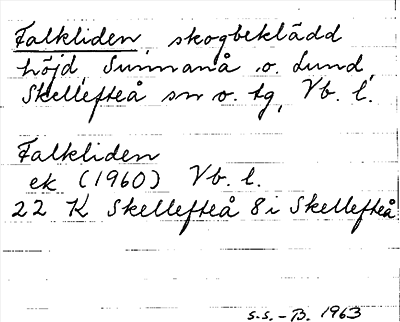 Falkliden, skogbeklädd
höjd, Sunnanå o. Lund,
Skellefteå sn o. tg, Vb. l.
Falkliden
ek (1960) Vb. l.
22 K Skellefteå 8 i Skellefteå
S.S. - B. 1963